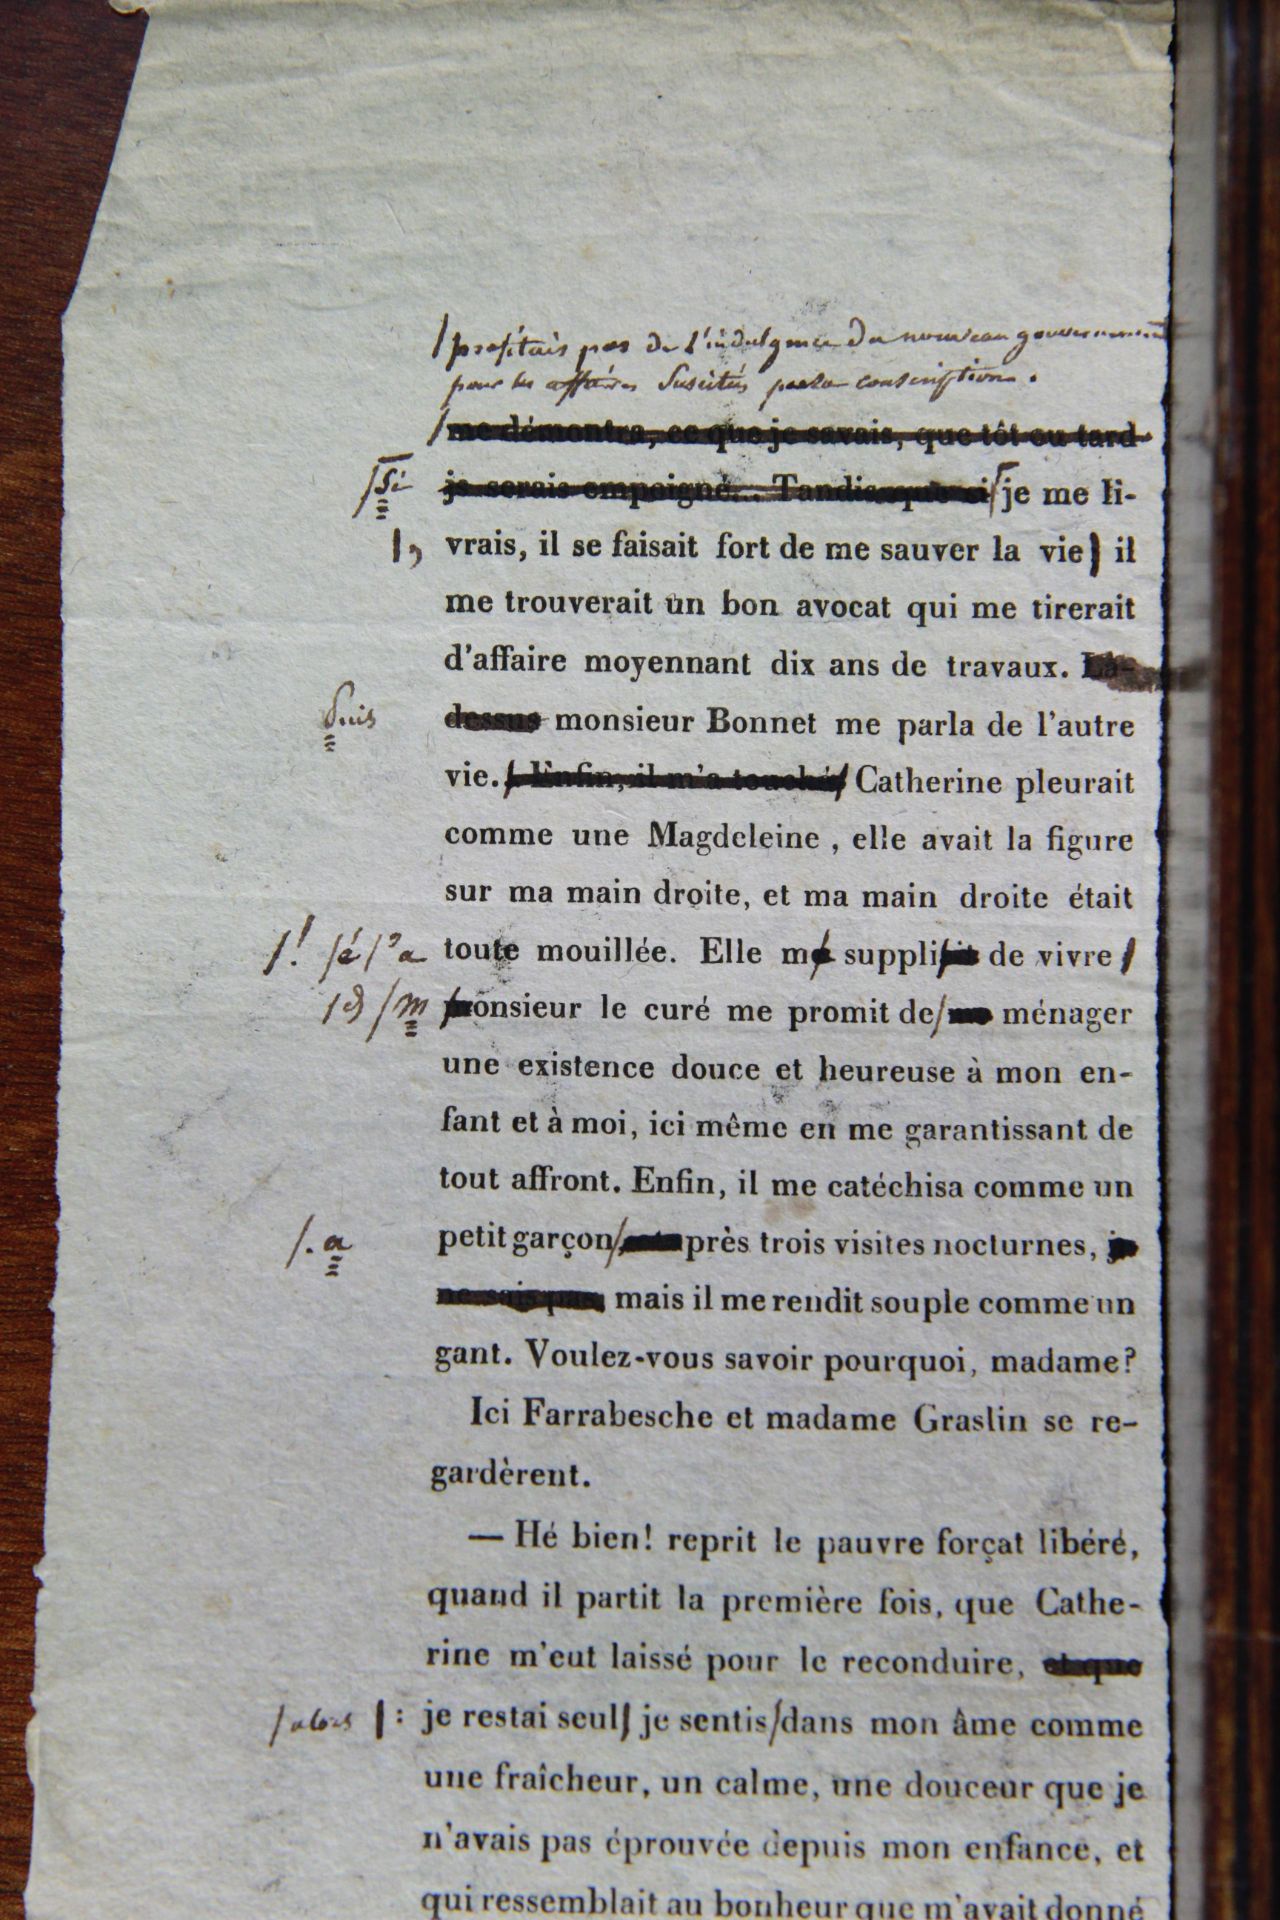 profitais pas de l'indulgence du nouveau gouvernement
pour les affaires suscitées par la conscription.
me démontra, ce que je savais, que tôt ou tard
Si je serais empoigné... Tandis que si je me li-
, vrais, il se faisait fort de me sauver la vie il
me trouverait un bon avocat qui me tirerait
d'affaire moyennant dix ans de travaux. Là-
Puis dessus monsieur Bonnet me parla de l'autre
vie. Enfin, il m'a touché Catherine pleurait
comme une Magdeleine, elle avait la figure
sur ma main droite, et ma main droite était
! é 'a toute mouillée. Elle me suppli de vivre
m onsieur le curé me promit de me ménager
une existence douce et heureuse à mon en-
fant et à moi, ici même en me garantissant de
tout affront. Enfin, il me catéchisa comme un
. a petit garçon près trois visites nocturnes, je
ne sais pas, mais il me rendit souple comme un
gant. Voulez-vous savoir pourquoi, madame?
Ici Farrabesche et madame Graslin se re-
gardèrent.
— Hé bien! reprit le pauvre forçat libéré,
quand il partit la première fois, que Cathe-
rine m'eut laissé pour le reconduire, et que
alors : je restai seul je sentis dans mon âme comme
une fraîcheur, un calme, une douceur que je
n'avais pas éprouvée depuis mon enfance, et
qui ressemblait au bonheur que m'avait donné